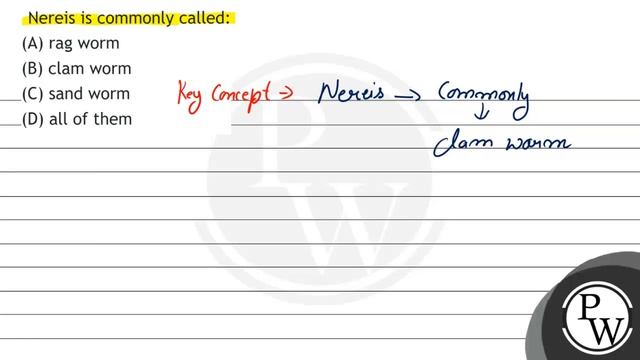 Nereis is commonly called:
(A) rag worm
(B) clam worm
(C) sand worm
(D) all of them
Key Concept → Nereis → Commonly
↓
Clam worm
P
W
P
W